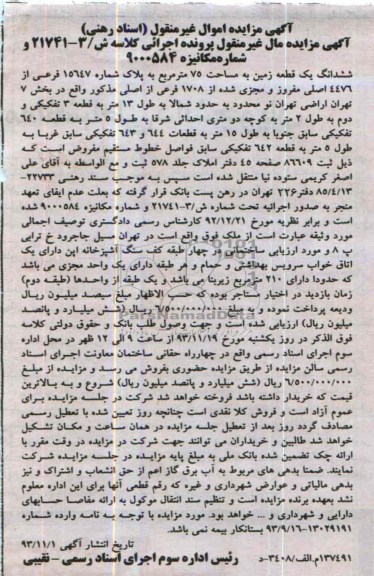 آگهی مزایده اموال غیرمنقول (اسناد رهنی)
آگهی مزایده مال غیرمنقول پرونده اجرائی کلاسه ش/۳-۲۱۷۴۱ و
شماره مکانیزه ۹۰۰۰۵۸۴
ششدانگ یک قطعه زمین به مساحت ۷۵ مترمربع به پلاک شماره ۱۵۶۴۷ فرعی از
۴۴۷۶ اصلی مفروز و مجزی شده از ۱۷۰۸ فرعی از اصلی مذکور واقع در بخش ۷
تهران اراضی تهران نو محدود به حدود شمالا به طول ۱۳ متر به قطعه ۳ تفکیکی و
دوم به طول ۲ متر به کوچه دو متری احداثی شرقا به طول ۵ متر به قطعه ۶۴۰
تفکیکی سابق جنوبا به طول ۱۵ متر به قطعات ۶۴۴ و ۶۴۳ تفکیکی سابق غربا به
طول ۵ متر به قطعه ۶۴۲ تفکیکی سابق فواصل خطوط مستقیم مفروض است که
ذیل ثبت ۸۶۶۰۹ صفحه ۴۵ دفتر املاک جلد ۵۷۸ ثبت و مع الواسطه به آقای علی
اصغر کریمی ستوده نیا منتقل شده است سپس به موجب سند رهنی ۲۲۷۳۳-
۸۵/۴/۱۳ دفتر ۲۲۶ تهران در رهن پست بانک قرار گرفته که بعلت عدم ایفای تعهد
منجر به صدور اجرائیه تحت شماره ش/۳-۲۱۷۴۱ و شماره مکانیزه ۹۰۰۰۵۸۴ شده
است و برابر نظریه مورخ ۹۲/۱۲/۲۱ کارشناس رسمی دادگستری توصیف اجمالی
مورد وثیقه عبارت است از ملک فوق واقع است در تهران سبل جاجرود خ ترابی
پ ۸ و مورد ارزیابی ساختمان در چهار طبقه کف سنگ آشپزخانه اپن دارای یک
اتاق خواب سرویس بهداشتی و حمام و هر طبقه دارای یک واحد مجزی می باشد
که حدودا دارای ۲۱۰ مترمربع زیربنا می باشد و یک طبقه از واحدها (طبقه دوم)
زمان بازدید در اختیار مستاجر بوده که حسب الاظهار مبلغ سیصد میلیون ریال
ودیعه پرداخت نموده و به مبلغ ۶/۵۰۰/۰۰۰/۰۰۰ ریال (شش میلیارد و پانصد
میلیون ریال) ارزیابی شده است و جهت وصول طلب بانک و حقوق دولتی کلاسه
فوق الذکر در روز یکشنبه مورخ ۹۳/۱۱/۱۹ از ساعت ۹ الی ۱۲ ظهر در محل اداره
سوم اجرای اسناد رسمی واقع در چهارراه حقانی ساختمان معاونت اجرای اسناد
رسمی سالن مزایده از طریق مزایده حضوری بفروش می رسد و مزایده از مبلغ
۶/۵۰۰/۰۰۰/۰۰۰ ریال (شش میلیارد و پانصد میلیون ریال) شروع و به بالاترین
قیمت که خریدار داشته باشد فروخته خواهد شد شرکت در جلسه مزایده برای
عموم آزاد است و فروش کلا نقدی است چنانچه روز تعیین شده با تعطیل رسمی
مصادف گردد روز بعد از تعطیل جلسه مزایده در همان ساعت و مکان تشکیل
خواهد شد طالبین و خریداران می توانند جهت شرکت در مزایده در وقت مقرر با
ارائه چک تضمین شده بانک ملی به مبلغ پایه مزایده در جلسه مزایده شرکت
نمایند. ضمنا بدهی های مربوط به آب برق گاز اعم از حق انشعاب و اشتراک و نیز
بدهی مالیاتی و عوارض شهرداری و غیره که رقم قطعی آنها برای این اداره معلوم
نشد بعهده برنده مزایده است و تنظیم سند انتقال موکول به ارائه مفاصا حسابهای
دارایی و شهرداری و ... خواهد بود. مورد مزایده با توجه به نامه وارده شماره
۱۳۰۲۹۱۹۱-۹۳/۹/۱۶ بستانکار بیمه نمی باشد.
تاریخ انتشار آگهی ۹۳/۱۱/۱
۱۳۷۴۹۱م.الف/۳۴۰۸-د رئیس اداره سوم اجرای اسناد رسمی - نقیبی